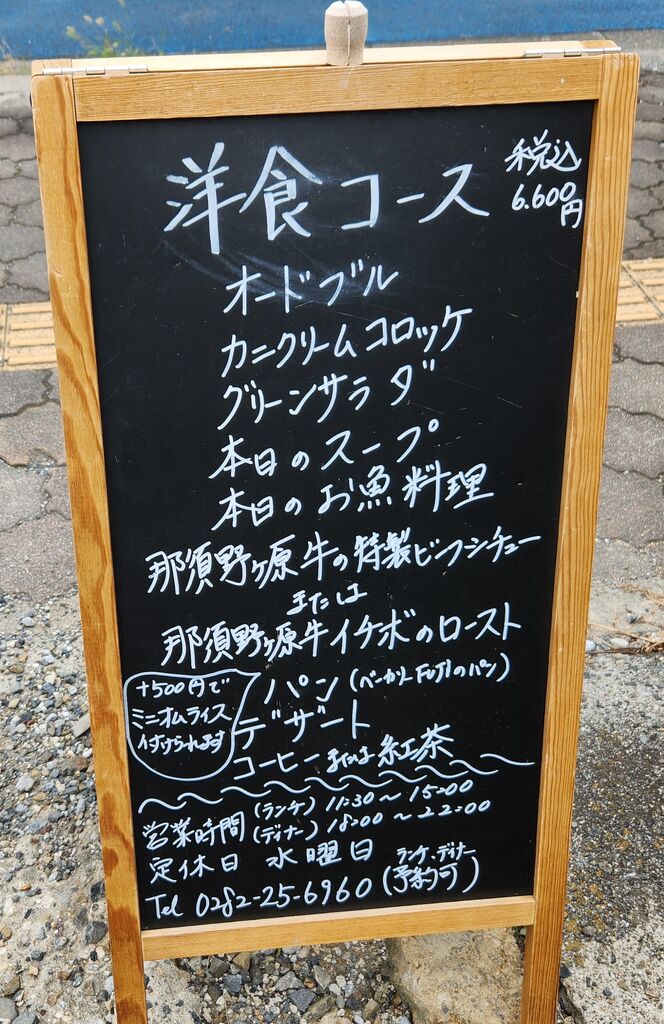 洋食コース
税込
6.600円
オードブル
カニクリームコロッケ
グリーンサラダ
本日のスープ
本日のお魚料理
那須野ヶ原牛の特製ビーフシチュー
または
那須野ヶ原牛イチボのロースト
パン(ベーカリーFUJIのパン)
デザート
コーヒーまたは紅茶
+500円で
ミニオムライス
付けられます
営業時間(ランチ)11:30〜15:00
(ディナー)18:00〜22:00
定休日 水曜日
ランチ、ディナー
Tel 0282-25-6960(予約可)